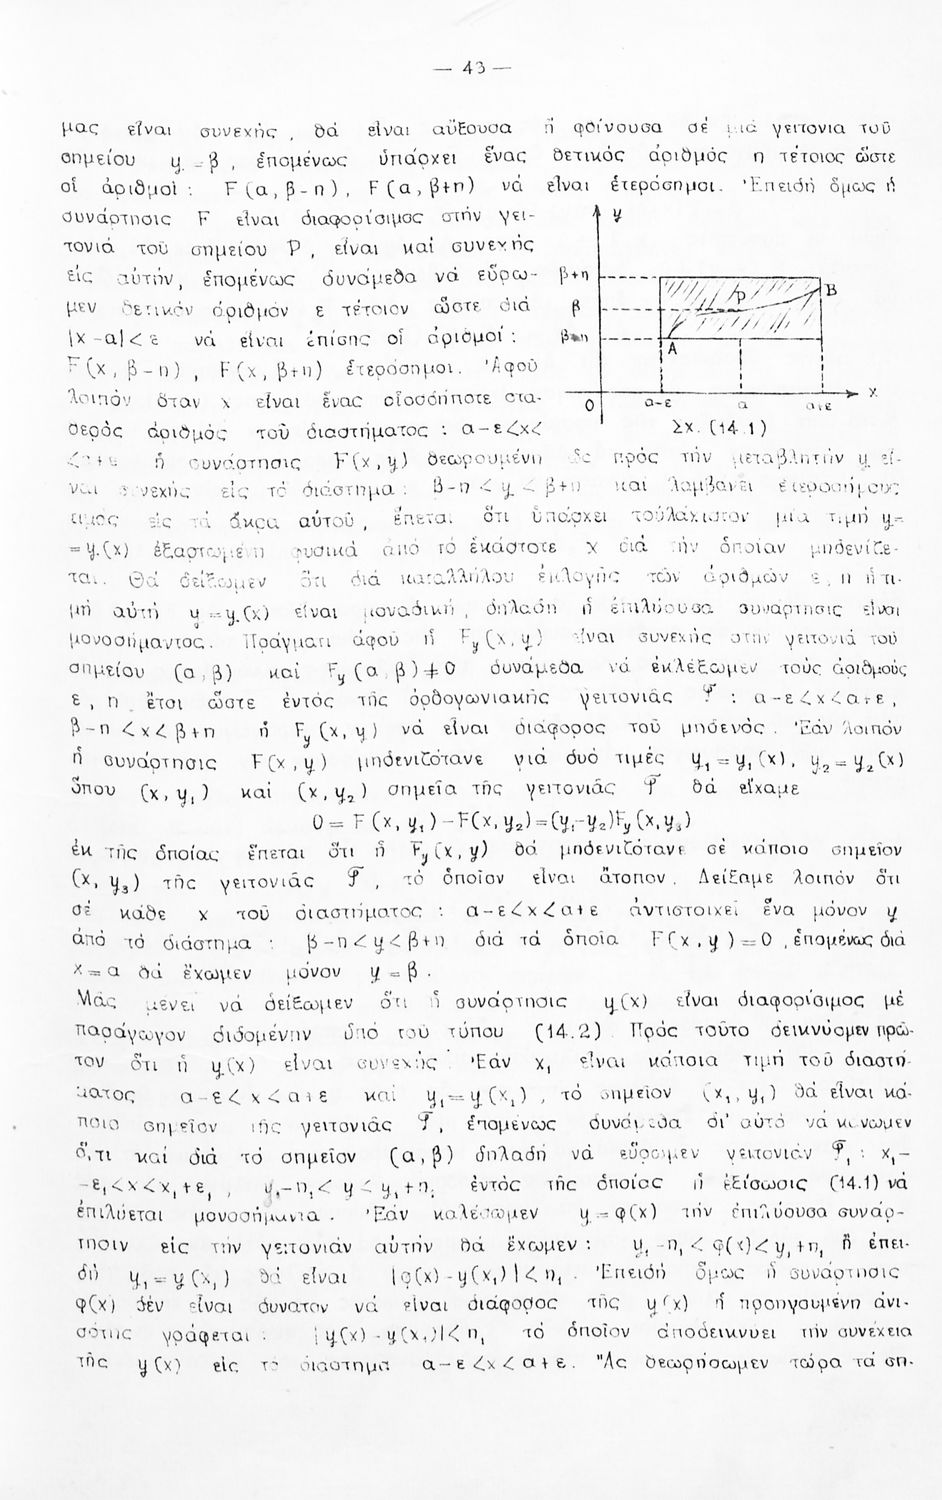 — 43 —
μας εἶναι συνεχής, θά εἶναι αὔξουσα ἤ φθίνουσα σέ μιά γειτονια τοῦ
σημείου y = β, ἑπομένως ὑπάρχει ἕνας θετικός ἀριθμός η τέτοιος ὥστε
οἱ ἀριθμοί : F(α, β-η), F(α, β+η) νά εἶναι ἑτερόσημοι. Ἐπειδή ὅμως ἡ
συνάρτησις F εἶναι διαφορίσιμος στήν γει-
τονιά τοῦ σημείου P, εἶναι καί συνεχής
εἰς αὐτήν, ἑπομένως δυνάμεθα νά εὕρω-
μεν θετικόν ἀριθμόν ε τέτοιον ὥστε διά
|x-α|<ε νά εἶναι ἐπίσης οἱ ἀριθμοί :
F(x, β-η), F(x, β+η) ἑτερόσημοι. Ἀφοῦ
λοιπόν ὅταν x εἶναι ἕνας οἱοσδήποτε στα-
θερός ἀριθμός τοῦ διαστήματος : α-ε<x<
y
β+η
β
β-η
P
B
A
O
α-ε
α
α+ε
x
Σχ. (14.1)
<α+ε ἡ συνάρτησις F(x,y) θεωρουμένη ὡς πρός τήν μεταβλητήν y εἶ-
ναι συνεχής εἰς τό διάστημα : β-η < y < β+η καί λαμβάνει ἑτεροσήμους
τιμάς εἰς τά ἄκρα αὐτοῦ, ἕπεται ὅτι ὑπάρχει τοὐλάχιστον μία τιμή y=
=y(x) ἐξαρτωμένη φυσικά ἀπό τό ἑκάστοτε x διά τήν ὁποίαν μηδενίζε-
ται. Θά δείξωμεν ὅτι διά καταλλήλου ἐκλογῆς τῶν ἀριθμῶν ε, η ἡ τι-
μή αὐτή y=y(x) εἶναι μοναδική, δηλαδή ἡ ἐπιλύουσα συνάρτησις εἶναι
μονοσήμαντος. Πράγματι ἀφοῦ ἡ Fy(x,y) εἶναι συνεχής στήν γειτονιά τοῦ
σημείου (α,β) καί Fy(α,β)≠0 δυνάμεθα νά ἐκλέξωμεν τούς ἀριθμούς
ε, η ἔτσι ὥστε ἐντός τῆς ὀρθογωνιακῆς γειτονιᾶς 𝒯 : α-ε<x<α+ε,
β-η <x< β+η ἡ Fy(x,y) νά εἶναι διάφορος τοῦ μηδενός. Ἐάν λοιπόν
ἡ συνάρτησις F(x,y) μηδενιζότανε γιά δυό τιμές y₁=y₁(x), y₂=y₂(x)
ὅπου (x,y₁) καί (x,y₂) σημεῖα τῆς γειτονιᾶς 𝒯 θά εἴχαμε
0 = F(x,y₁)-F(x,y₂)=(y₁-y₂)Fy(x,y₃)
ἐκ τῆς ὁποίας ἕπεται ὅτι ἡ Fy(x,y) θά μηδενιζότανε σέ κάποιο σημεῖον
(x,y₃) τῆς γειτονιᾶς 𝒯, τό ὁποῖον εἶναι ἄτοπον. Δείξαμε λοιπόν ὅτι
σέ κάθε x τοῦ διαστήματος : α-ε<x<α+ε ἀντιστοιχεῖ ἕνα μόνον y
ἀπό τό διάστημα : β-η<y<β+η διά τά ὁποῖα F(x,y)=0, ἑπομένως διά
x=α θά ἔχωμεν μόνον y=β.
Μᾶς μένει νά δείξωμεν ὅτι ἡ συνάρτησις y(x) εἶναι διαφορίσιμος μέ
παράγωγον διδομένην ὑπό τοῦ τύπου (14.2). Πρός τοῦτο δεικνύομεν πρῶ-
τον ὅτι ἡ y(x) εἶναι συνεχής. Ἐάν x₁ εἶναι κάποια τιμή τοῦ διαστή-
ματος α-ε<x<α+ε καί y₁=y(x₁), τό σημεῖον (x₁,y₁) θά εἶναι κά-
ποιο σημεῖον τῆς γειτονιᾶς 𝒯, ἑπομένως δυνάμεθα δι' αὐτό νά κάνωμεν
ὅ,τι καί διά τό σημεῖον (α,β) δηλαδή νά εὕρωμεν γειτονιάν 𝒯₁ : x₁-
-ε₁<x<x₁+ε₁, y₁-η₁< y < y₁+η₁ ἐντός τῆς ὁποίας ἡ ἐξίσωσις (14.1) νά
ἐπιλύεται μονοσήμαντα. Ἐάν καλέσωμεν y=φ(x) τήν ἐπιλύουσα συνάρ-
τησιν εἰς τήν γειτονιάν αὐτήν θά ἔχωμεν : y₁-η₁ < φ(x)< y₁+η₁ ἤ ἐπει-
δή y₁=y(x₁) θά εἶναι |φ(x)-y(x₁)|< η₁. Ἐπειδή ὅμως ἡ συνάρτησις
φ(x) δέν εἶναι δυνατον νά εἶναι διάφορος τῆς y(x) ἡ προηγουμένη ἀνι-
σότης γράφεται : |y(x)-y(x₁)|< η₁ τό ὁποῖον ἀποδεικνύει τήν συνέχεια
τῆς y(x) εἰς τό διάστημα α-ε<x<α+ε. Ἄς θεωρήσωμεν τώρα τά ση-